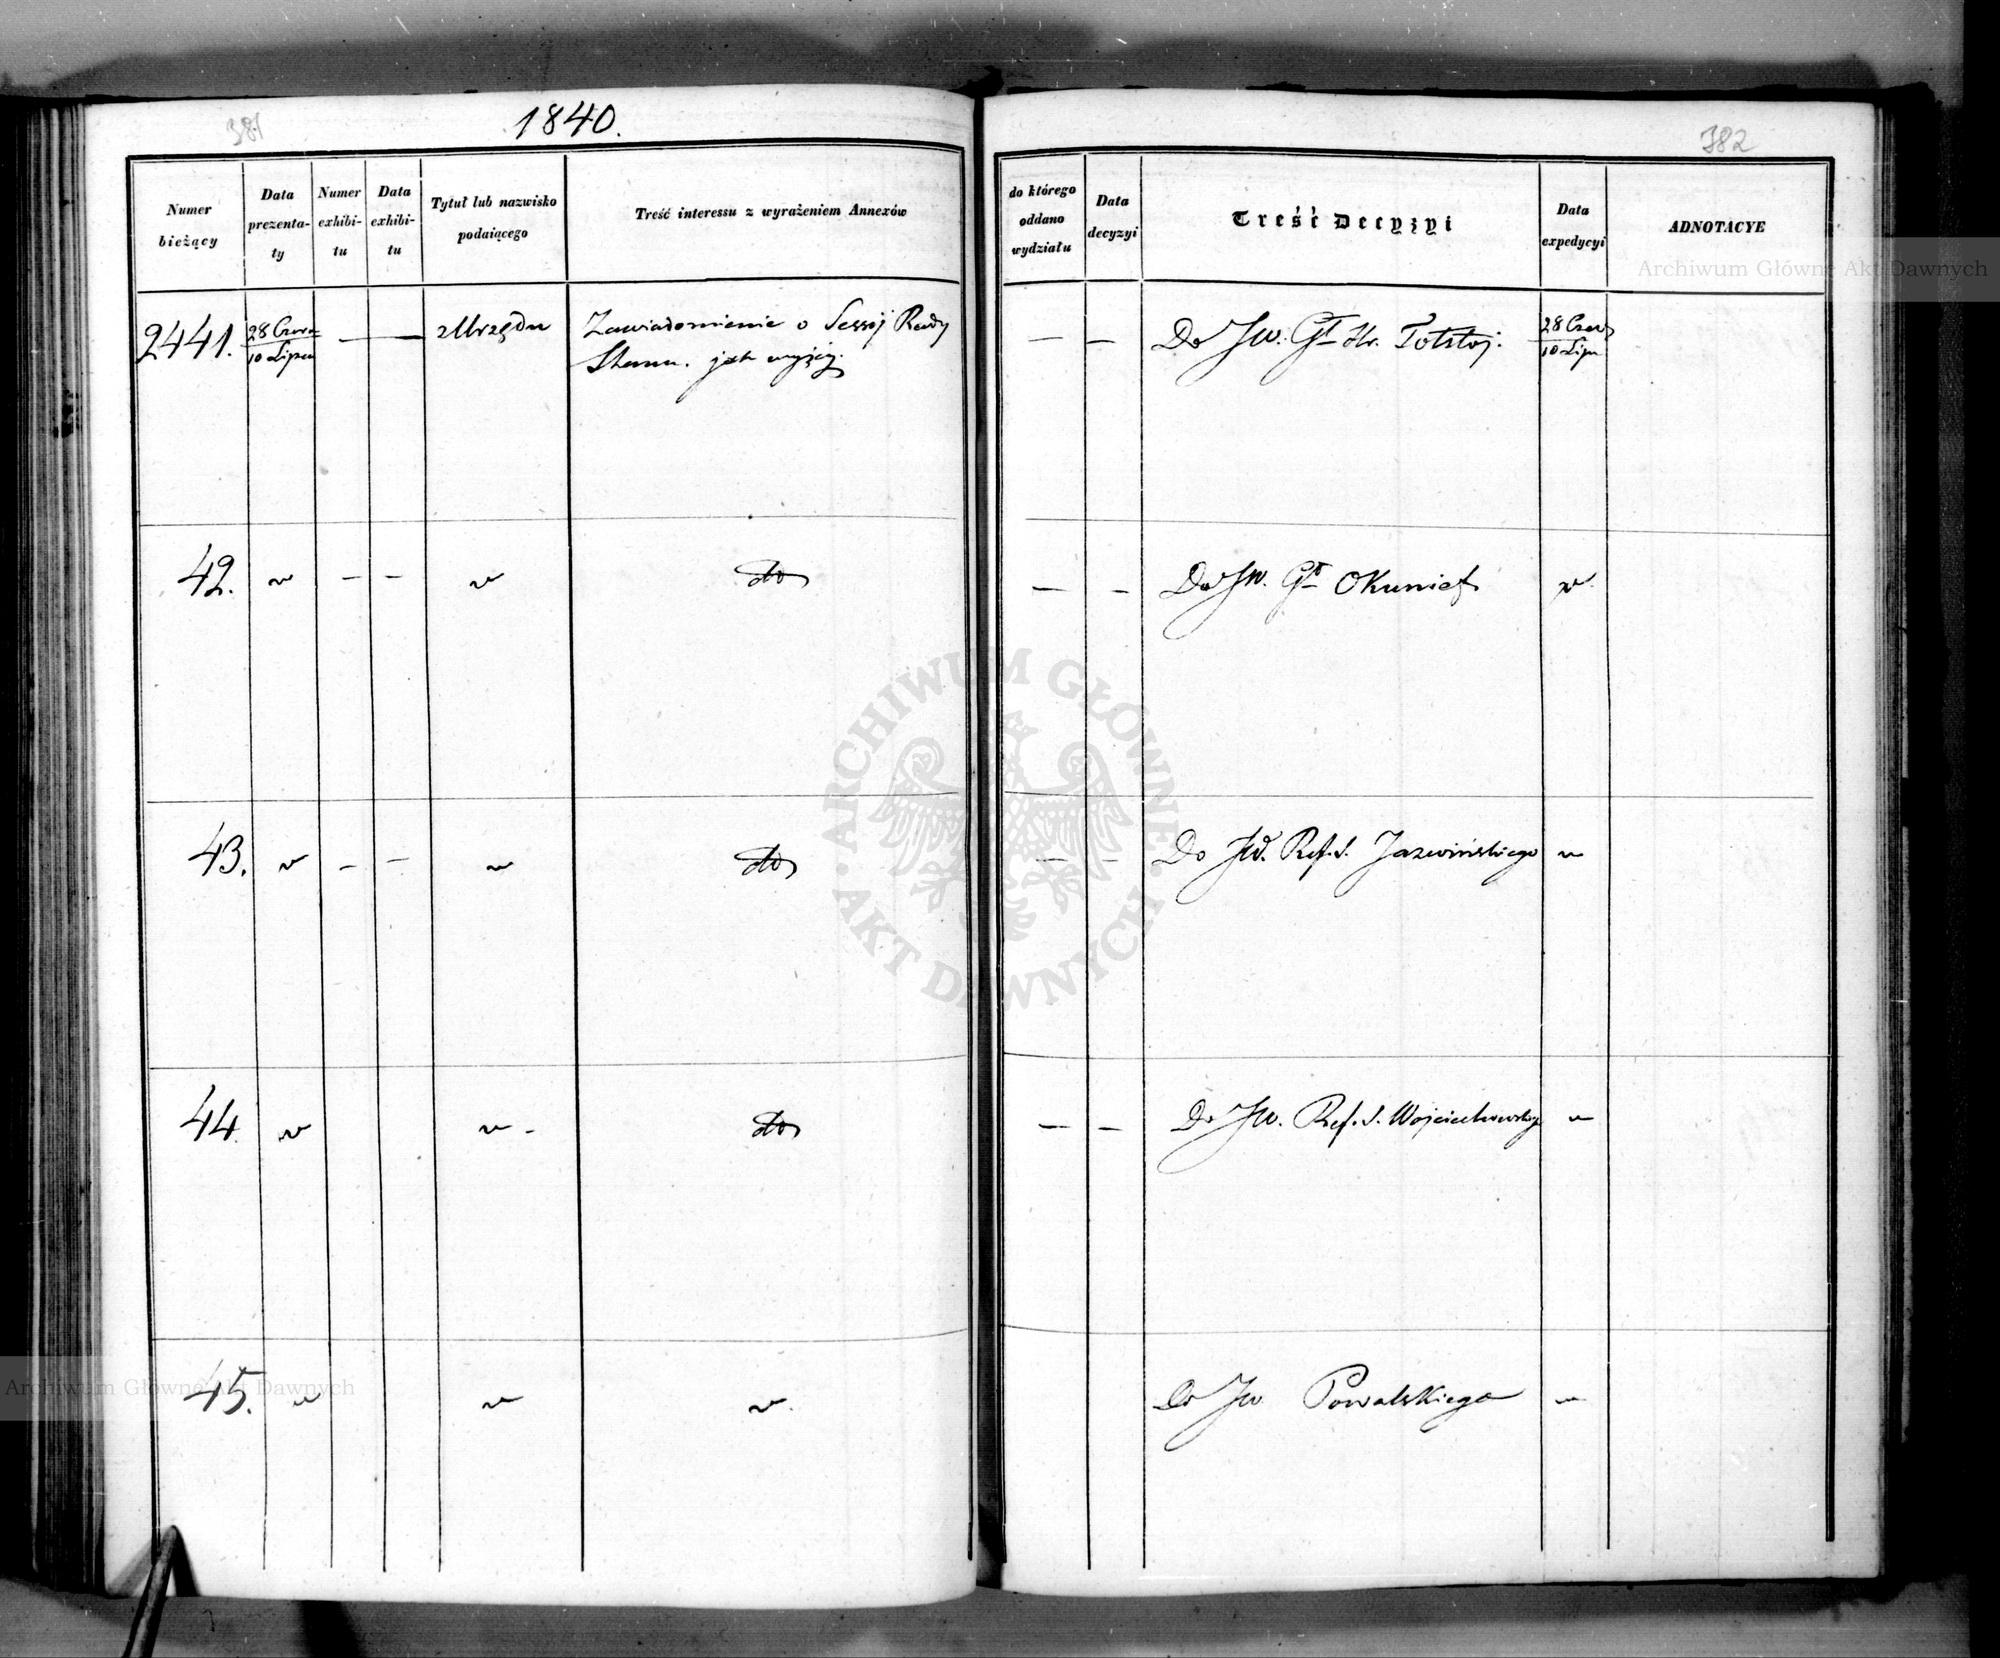 381
1840.
382
Numer bieżący
Data prezenta-ty
Numer exhibi-tu
Data exhibi-tu
Tytuł lub nazwisko podaiącego
Treść interessu z wyrażeniem Annexów
do którego oddano wydziału
Data decyzyi
Treść Decyzyi
Data expedycyi
ADNOTACYE
2441. 28 Czerw — — z Urzędu Zawiadomienie o Sessyi Rady — — Do JW. Gł Hr. Tołstoj. 28 Czerw
10 Lipca Stanu. jak wyżej. 10 Lipca
42. " — — " dto — — Do JW. Gł Okunief "
43. " — — " dto — — Do JW. Ref. S. Jazwińskiego "
44. " " - dto — — Do JW. Ref. S. Wojciechowskieg "
45. " " " Do JW Powalskiego "
ARCHIWUM GŁÓWNE AKT DAWNYCH
Archiwum Główne Akt Dawnych
Archiwum Główne Akt Dawnych